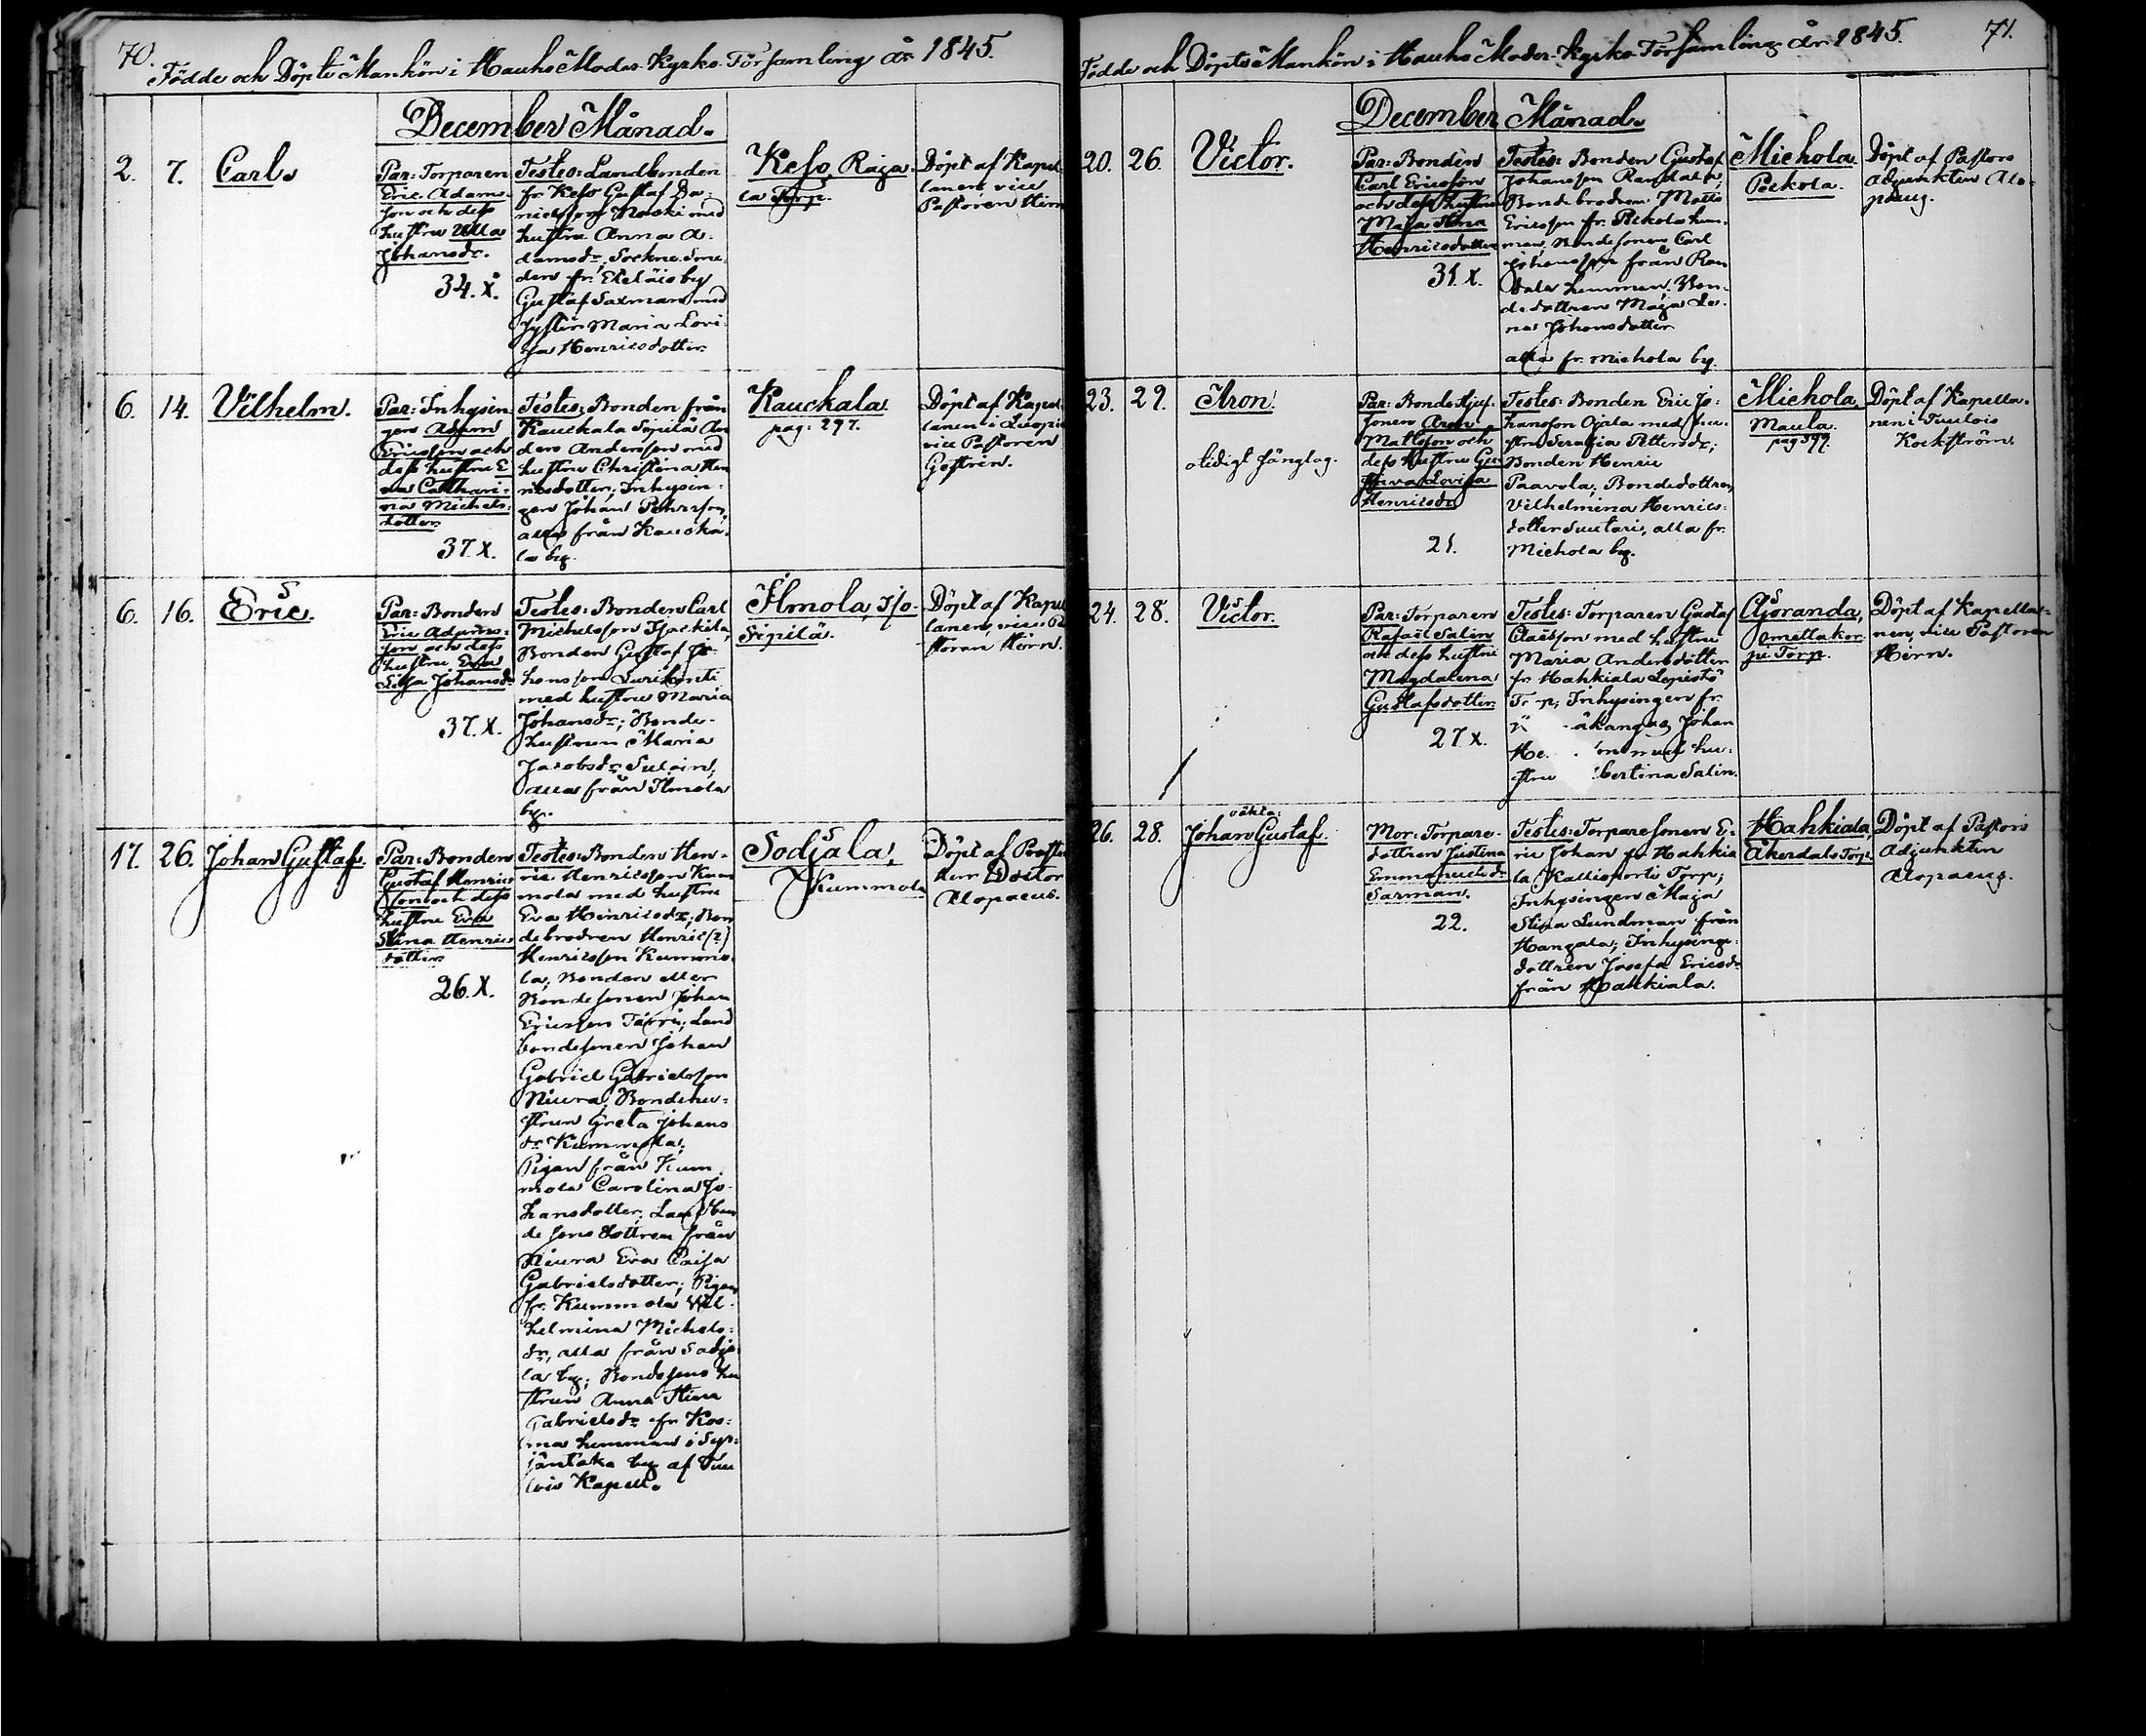 70. Födde och Döpte Mankön i Hauho Moder-Kyrko-Församling år 1845.
December Månad.
2. 7. Carl.
Par: Torparen
Eric Adams-
son och dess
hustru Ulla
Johansdr.
34. X.
Testes: Landbonden
fr. Keso Gustaf Da-
nielsson Koski med
hustru Anna A-
damsdr; Sockne Smeden
fr. Eteläis by
Gustaf Saxman med
syster Maria Lovi-
sa Henricsdotter.
Keso, Raja-
la Torp.
Döpt af Kapel-
lanen vice
Pastoren Hirn
6. 14. Vilhelm.
Par: Inhysin-
gen Adam
Ericsson och
dess hustru E-
va Cathari-
na Michels-
dotter
37. X.
Testes: Bonden från
Kauckala Sipilä An-
ders Andersson med
hustru Christina Hen-
ricsdotter; Inhysin-
gen Johan Pehrsson,
alla från Kaucka-
la by.
Kauckala.
pag: 297.
Döpt af Kapel-
lanen i
vice Pastoren
Gestrin.
6. 16. Eric.
Par: Bonden
Eric Adams-
son och dess
hustru Eva
Lisa Johansdr
37. X.
Testes: Bonden Carl
Michelsson
Bonden Gustaf Jo-
hansson
med hustru Maria
Johansdr; Bonde-
hustrun Maria
Jacobsdr
alla från Ilmola
by.
Ilmola, Iso-
Sipilä.
Döpt af Kapel-
lanen, vice Pa-
storen Hirn.
17. 26. Johan Gustaf.
Par: Bonden
Gustaf Henrics-
son och dess
hustru Eva
Stina Henrics-
dotter
26. X.
Testes: Bonden Hen-
ric Henricsson Kum-
mola med hustru
Eva Henricsdr; Bon-
debrodren Henric (2)
Henricsson Kummo-
la, Bonden eller
Bondesonen Johan
Ericsson Tärri; Land-
bondesonen Johan
Gabriel Gabrielsson
Niura; Bondehu-
strun Greta Johans
dr Kummola;
Pigan från Kum
mola Carolina Jo-
hansdotter; Landbon
de sons dottren från
Niura Eva Caisa
Gabrielsdotter; Pigan
fr. Kummola Vil-
helmina Michels-
dr, alla från Sodja-
la by; Bondesons hu
strun Anna Stina
Gabrielsdr fr Kos-
ma hemman i Syr-
jäntaka by af Tuu
lois Kapell.
Sodjala,
Kummola
Döpt af Prosten
Herr Doctor
Alopaeus.
Födde och Döpte Mankön i Hauho Moder-Kyrko-Församling år 1845. 71.
December Månad.
20. 26. Victor.
Par: Bonden
Carl Ericsson
och dess hustru
Maja Stina
Henricsdotter
31. X.
Testes: Bonden Gustaf
Johansson
Bonde brodren Matts
Ericsson fr. Pickola hem-
man, Bondesonen Carl
Johansson från
hemman; Bon-
dedottren Maja Le-
na Johansdotter
alla fr. Michola by.
Michola.
Pickola.
Döpt af Pastors
Adjunkten Alo-
paeus.
23. 29. Aron.
olidigt fånglag.
Par: Bonde
sonen Aron
Mattsson och
dess hustru Gu-
stava Lovisa
Henricsdr
21.
Testes: Bonden Eric Jo-
hansson Ojala med hu-
stru Serafia Pettersdr;
Bonden Henric
Paavola; Bondedottren
Vilhelmina Henrics-
dotter Suutari, alla fr.
Michola by.
Michola,
Maula.
pag 399.
Döpt af Kapella-
nen i Tuulois
Kockström.
24. 28. Victor.
Par: Torparen
Rafael Salin
och dess hustru
Magdalena
Gustafsdotter
27 X.
Testes: Torparen Gustaf
Claësson med hustru
Maria Andersdotter
fr. Hahkiala Lepistö
Torp; Inhysingen fr.
Johan
med hu-
stru bertina Salin.
Ajoranda,
Döpt af Kapella-
nen, vice Pastoren
Hirn.
26. 28. Johan Gustaf.
oäkta:
Mor: Torpare-
dottren Justina
Emanuelsdr
Saxman.
22.
Testes: Torparesonen E-
ric Johan fr. Hahkia
la Kallioportti Torp;
Inhysingen Maja
Stina Lundman från
Hangala; Inhysinge-
dottren Josefa Ericsdr
från Hahkiala.
Hahkiala,
Åkerdals Torp.
Döpt af Pastors
Adjunkten
Alopaeus.